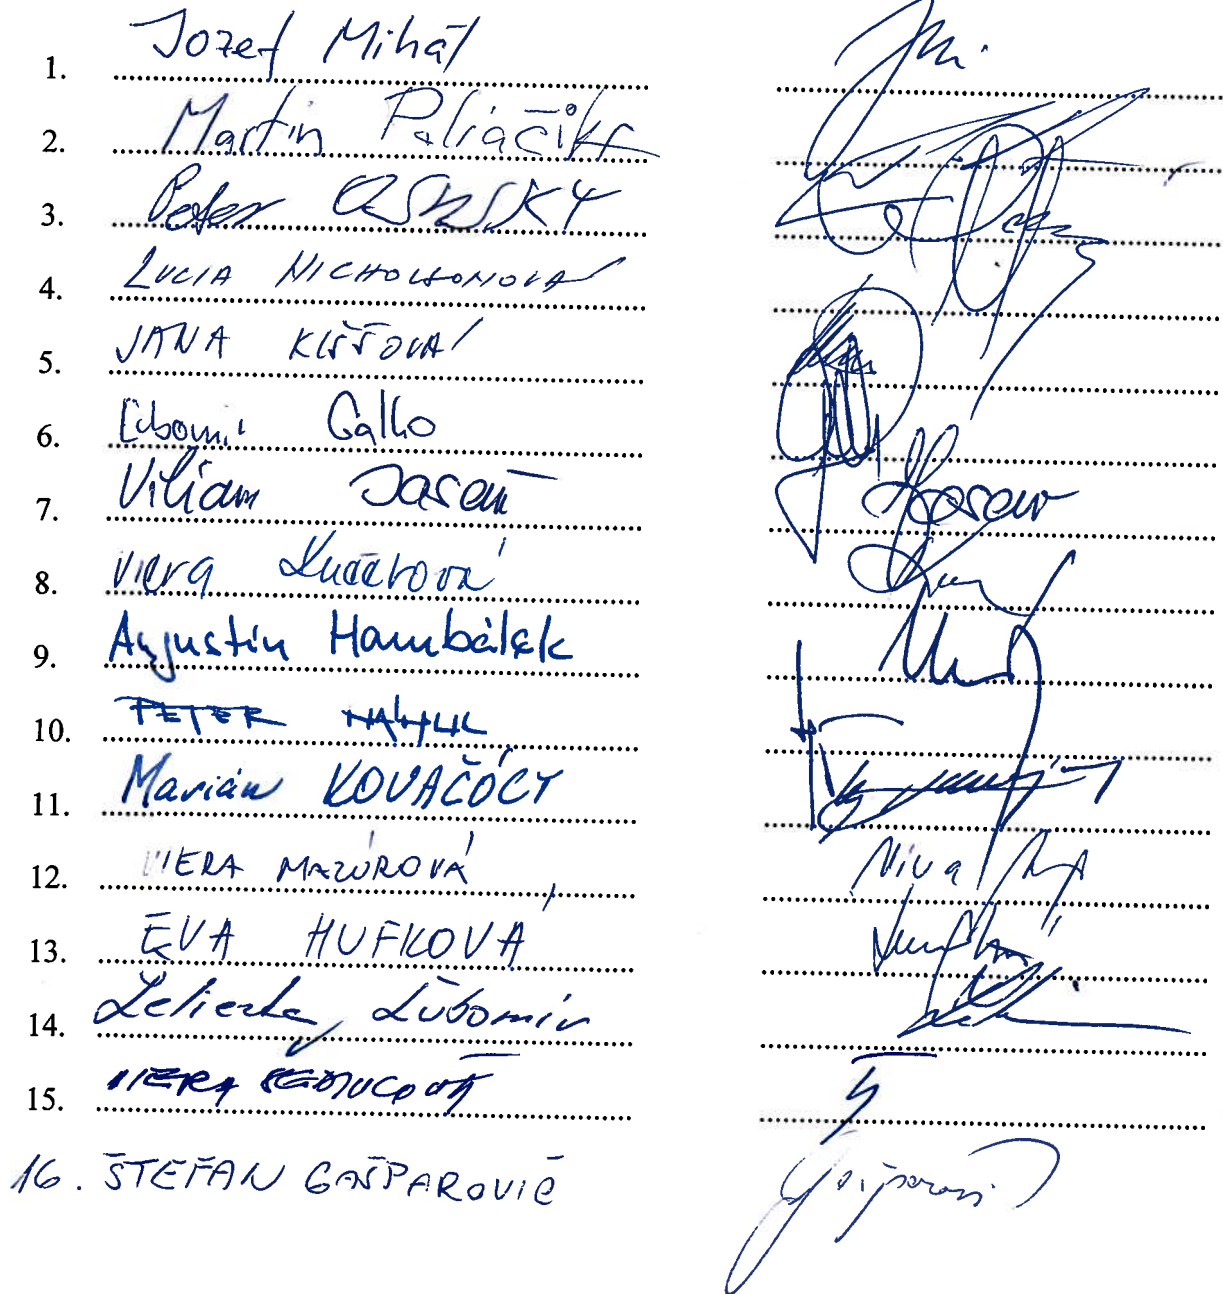 1. Jozef Mihál
2. Martin Poliačik
3. Peter OSUSKÝ
4. LUCIA NICHOLSONOVÁ
5. JANA KIŠŠOVÁ
6. Ľubomír Galko
7. Viliam Jasaň
8. Viera Kučerová
9. Augustín Hambálek
10. PETER
11. Marián KOVAČÓCY
12. VIERA MAZÚROVÁ
13. EVA HUFKOVÁ
14. Želiezka, Ľubomír
15. VIERA
16. ŠTEFAN GAŠPAROVIČ